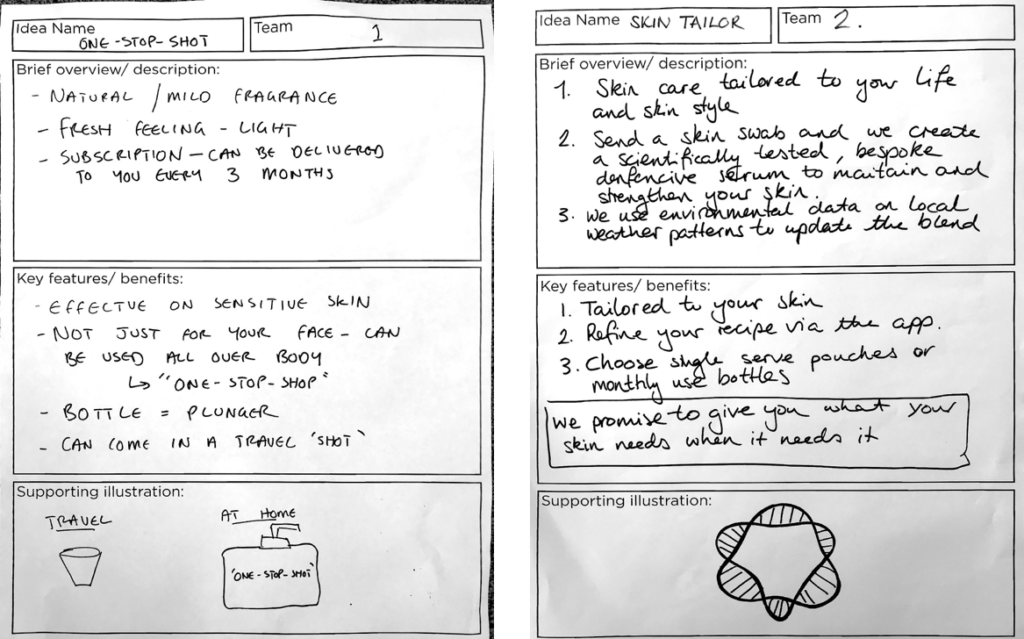 Idea Name
ONE-STOP-SHOT
Team
1
Brief overview/ description:
- NATURAL / MILD FRAGRANCE
- FRESH FEELING - LIGHT
- SUBSCRIPTION - CAN BE DELIVERED
TO YOU EVERY 3 MONTHS
Key features/ benefits:
- EFFECTVE ON SENSITIVE SKIN
- NOT JUST FOR YOUR FACE - CAN
BE USED ALL OVER BODY
↳ "ONE-STOP-SHOP"
- BOTTLE = PLUNGER
- CAN COME IN A TRAVEL 'SHOT'
Supporting illustration:
TRAVEL
AT HOME
'ONE-STOP-SHOT'
Idea Name SKIN TAILOR
Team 2.
Brief overview/ description:
1. Skin care tailored to your life
and skin style
2. Send a skin swab and we create
a scientifically tested, bespoke
denfencive serum to maitain and
strengthen your skin.
3. We use environmental data on local
weather patterns to update the blend
Key features/ benefits:
1. Tailored to your skin
2. Refine your recipe via the app.
3. Choose single serve pouches or
monthly use bottles
We promise to give you what your
skin needs when it needs it
Supporting illustration: